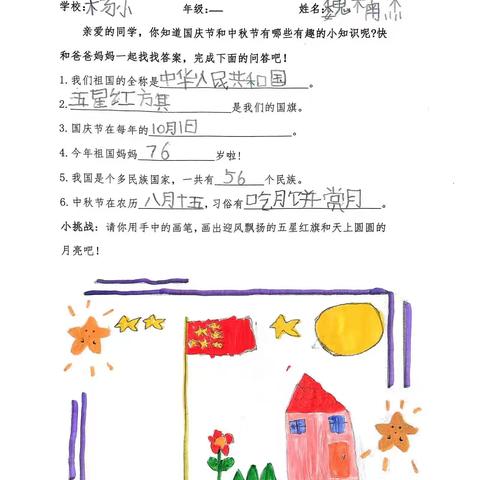 学校:杨小 年级:一 姓名:魏楠杰
亲爱的同学，你知道国庆节和中秋节有哪些有趣的小知识呢?快
和爸爸妈妈一起找找答案，完成下面的问答吧!
1.我们祖国的全称是中华人民共和国。
2.五星红方其是我们的国旗。
3.国庆节在每年的10月1日。
4.今年祖国妈妈76岁啦!
5.我国是个多民族国家，一共有56个民族。
6.中秋节在农历八月十五,习俗有吃月饼赏月。
小挑战:请你用手中的画笔，画出迎风飘扬的五星红旗和天上圆圆的
月亮吧!